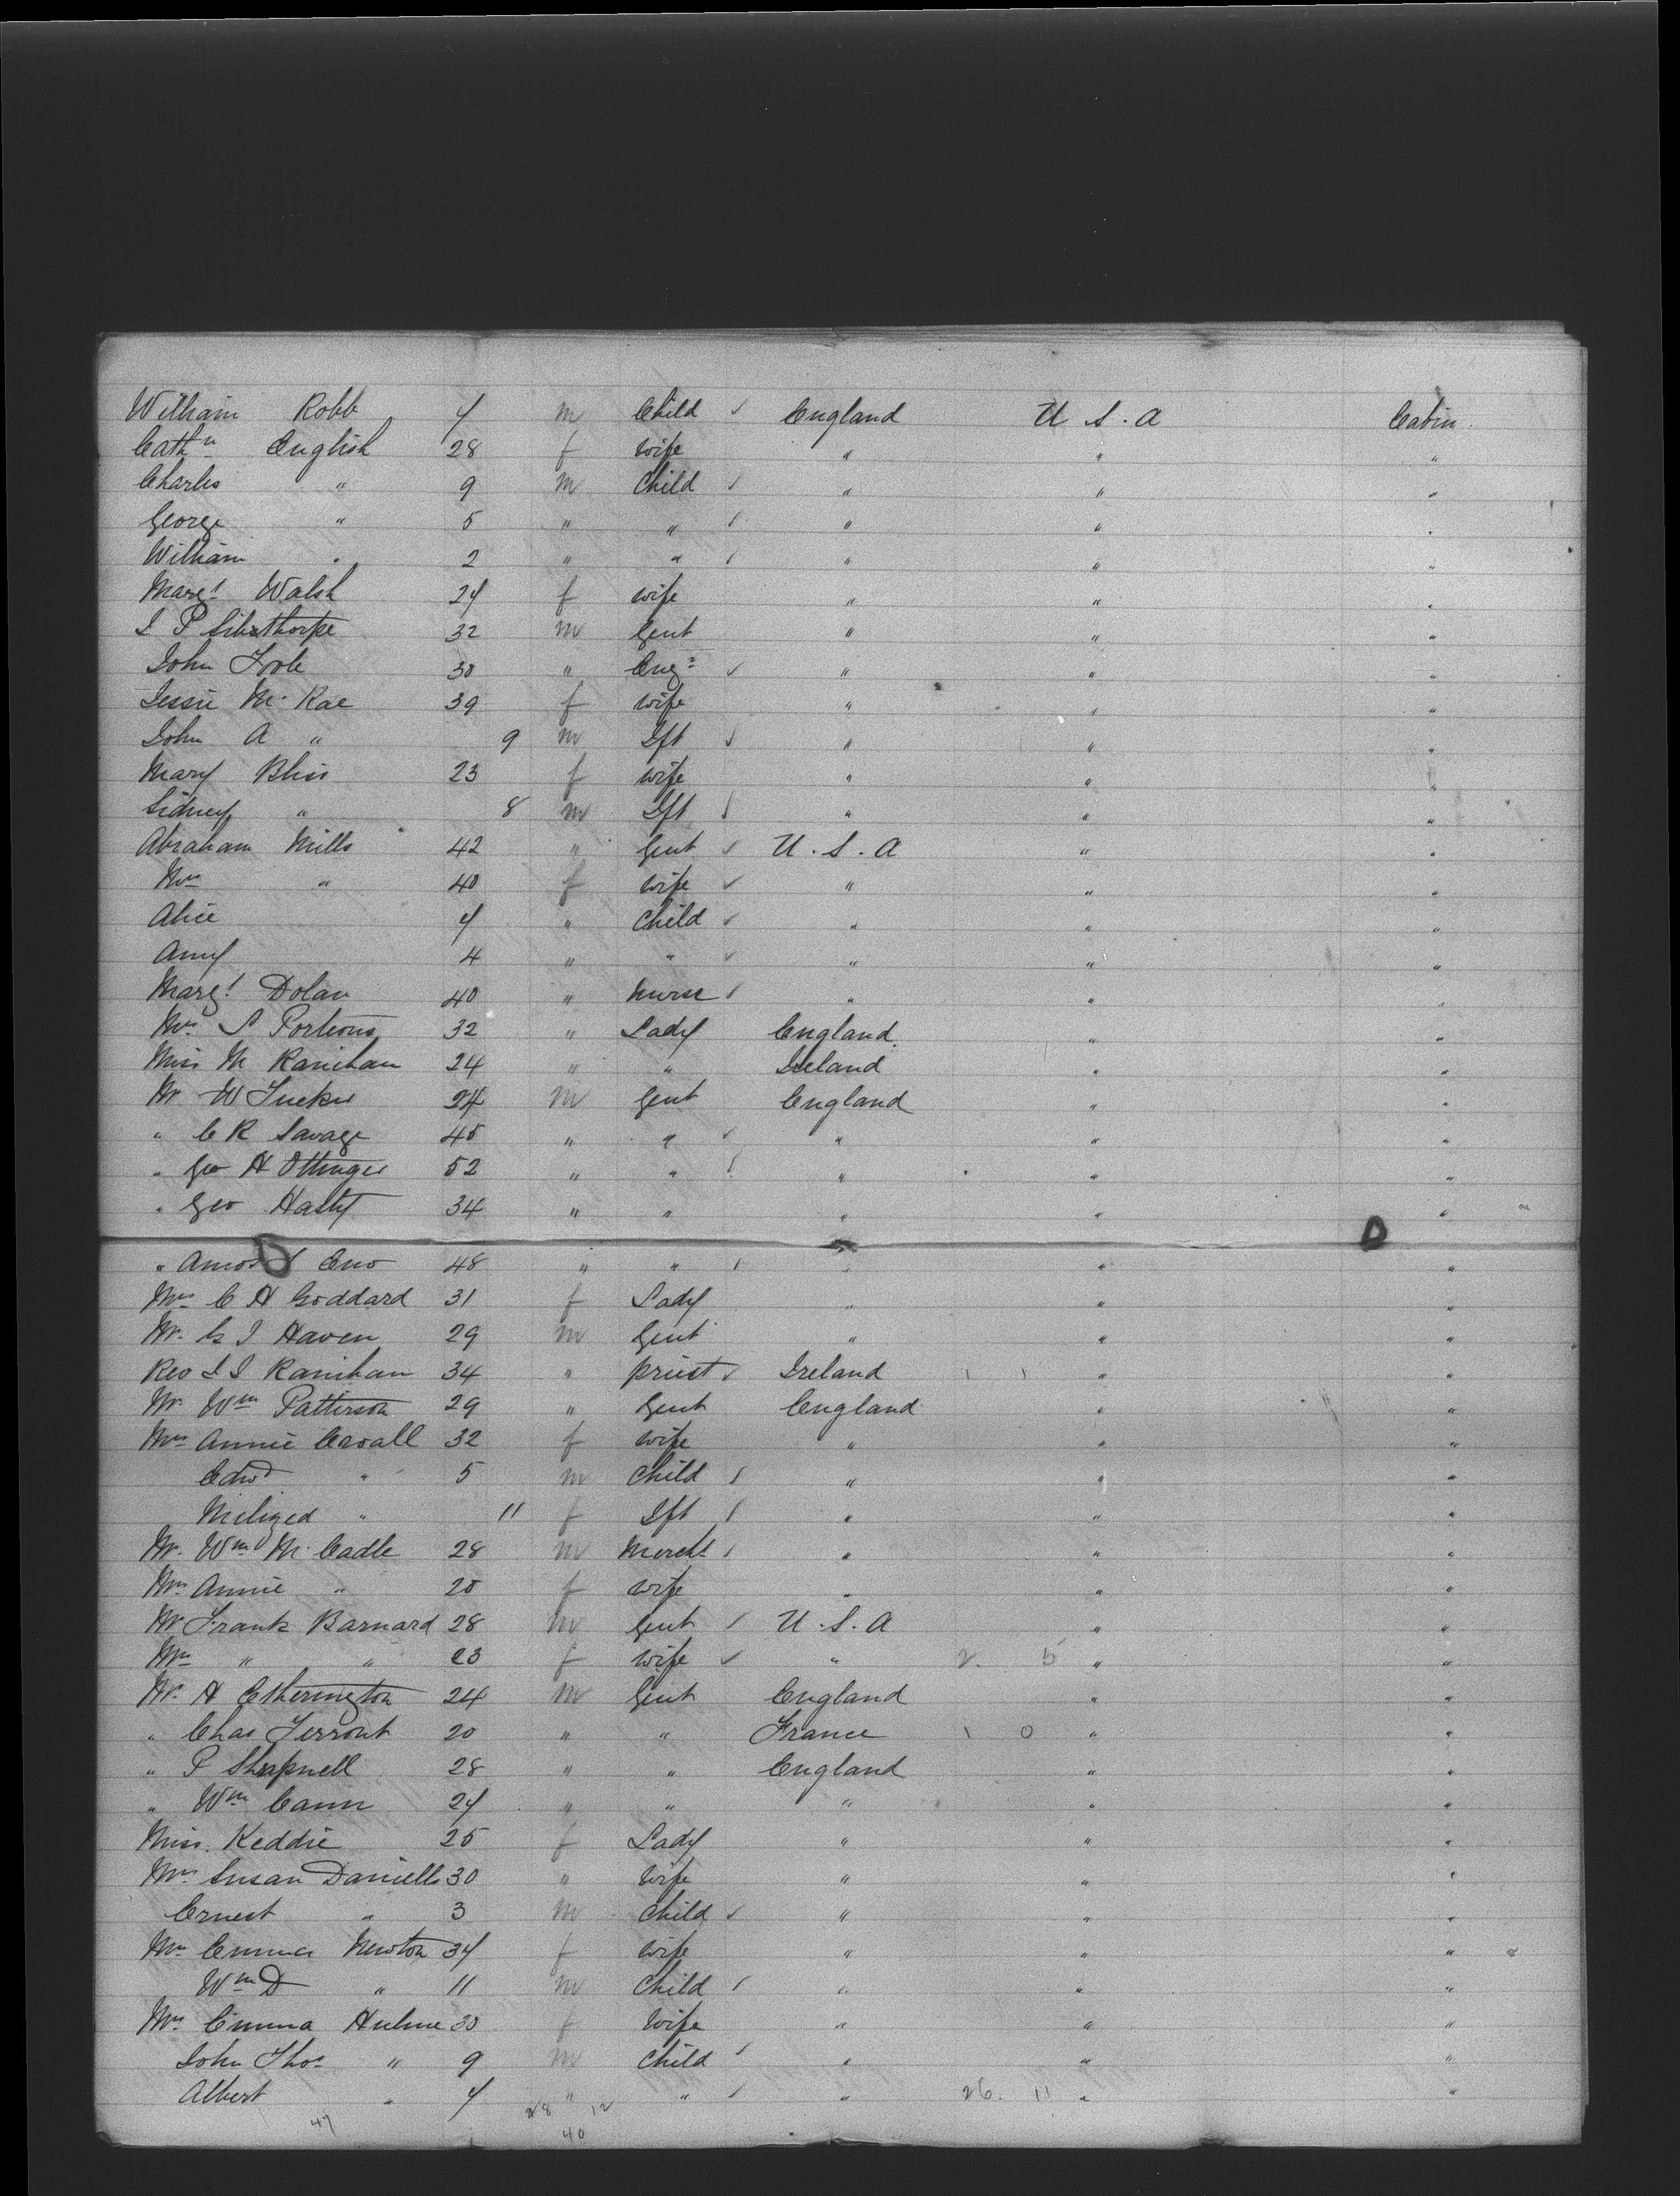 William Robb 7 m Child ✓ England U.S.A Cabin
Cathn English 28 f wife " " "
Charles " 9 m Child ✓ " " "
George " 5 " " ✓ " " "
William " 2 " " ✓ " " "
Margt Walsh 27 f wife " " "
J P Sibsthorpe 32 m Gent " " "
John Toole 30 " Engr ✓ " " "
Jessie McRae 39 f wife " " "
John A " 9 m Ift ✓ " " "
Mary Bliss 23 f wife " " "
Sidney " 8 m Ift ✓ " " "
Abraham Mills 42 " Gent ✓ U.S.A " "
Mrs " 40 f wife ✓ " " "
Alice 7 " Child ✓ " " "
Amy 4 " " ✓ " " "
Margt Dolan 40 " nurse ✓ " " "
Mrs S Porteous 32 " Lady England " "
Miss M Ranihan 24 " " Ireland " "
Mr W Tucker 24 m Gent England " "
" C R Savage 45 " " ✓ " " "
" Geo H Ottinger 52 " " ✓ " " "
" Geo Hasty 34 " " " " "
D
" Amos Eno 48 " " ✓ " " "
Mrs C H Goddard 31 f Lady " " "
Mr. G J Haven 29 m Gent " " "
Rev J J Ranihan 34 " priest ✓ Ireland 1 1 " "
Mr Wm Patterson 29 " Gent England " "
Mrs Annie Croall 32 f wife " " "
Edwd " 5 m Child ✓ " " "
" 11 f Ift ✓ " " "
Mr. Wm McCadle 28 m Mercht ✓ " " "
Mrs Annie " 25 f wife " " "
Mr Frank Barnard 28 m Gent ✓ U.S.A " "
Mrs " " 23 f wife ✓ " 2. 5 " "
Mr. H Etherington 24 m Gent England " "
" Chas 20 " " France 1 0 " "
" P Shapnell 28 " " England " "
" Wm Cann 27 " " " " "
Miss. Keddie 25 f Lady " " "
Mrs Susan Daniells 30 " wife " " "
Ernest " 3 m Child ✓ " " "
Mrs Emma Newton 37 f wife " " "
Wm D " 11 m Child ✓ " " "
Mrs Emma Hulme 30 f wife " " "
John Thos " 9 m Child ✓ " " "
Albert " 7 " " ✓ " 26. 11 " "
47 28 12
40